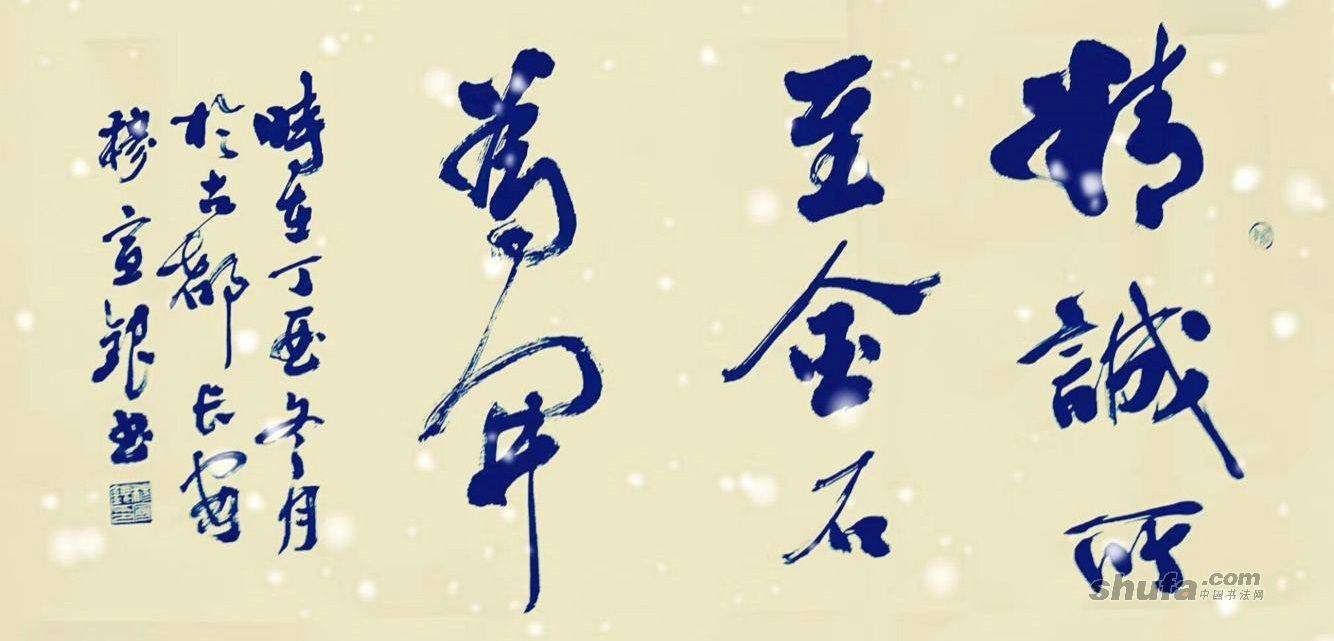 精誠所
至金石
為開
時在丁酉冬月
於古都长安
穆宣銀书
shufa.com
中国书法网